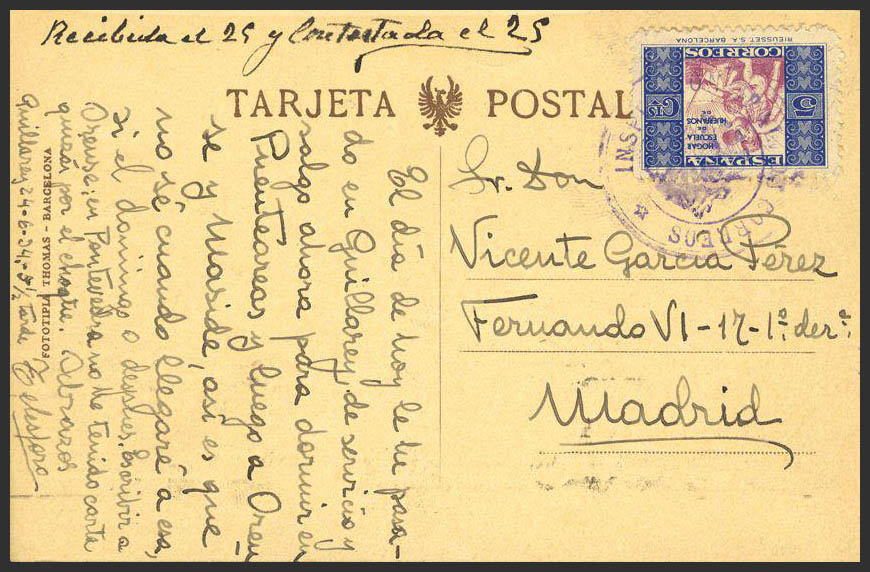 Recibida el 25 y Contestada el 25
TARJETA POSTAL
El día de hoy le he pasa-
do en Guillarey, de servicio y
salgo ahora para dormir en
Puenteareas y luego a Oren-
se y Maside, así es que
no sé cuando llegaré a esa,
si el domingo o después. Escribir a
Orense; en Pontevedra no he tenido carta
quizás por el choque. Abrazos
Guillarey 24-6-34, 5½ tarde
Telesforo
FOTOTIPIA THOMAS - BARCELONA
Sr. Don
Vicente García Pérez
Fernando VI-17-1º. derª.
Madrid
ESPAÑA
HOGAR
ESCUELA
DE
HUERFANOS
DE
CORREOS
5 Cts
RIEUSSET, S.A. BARCELONA
CORREOS